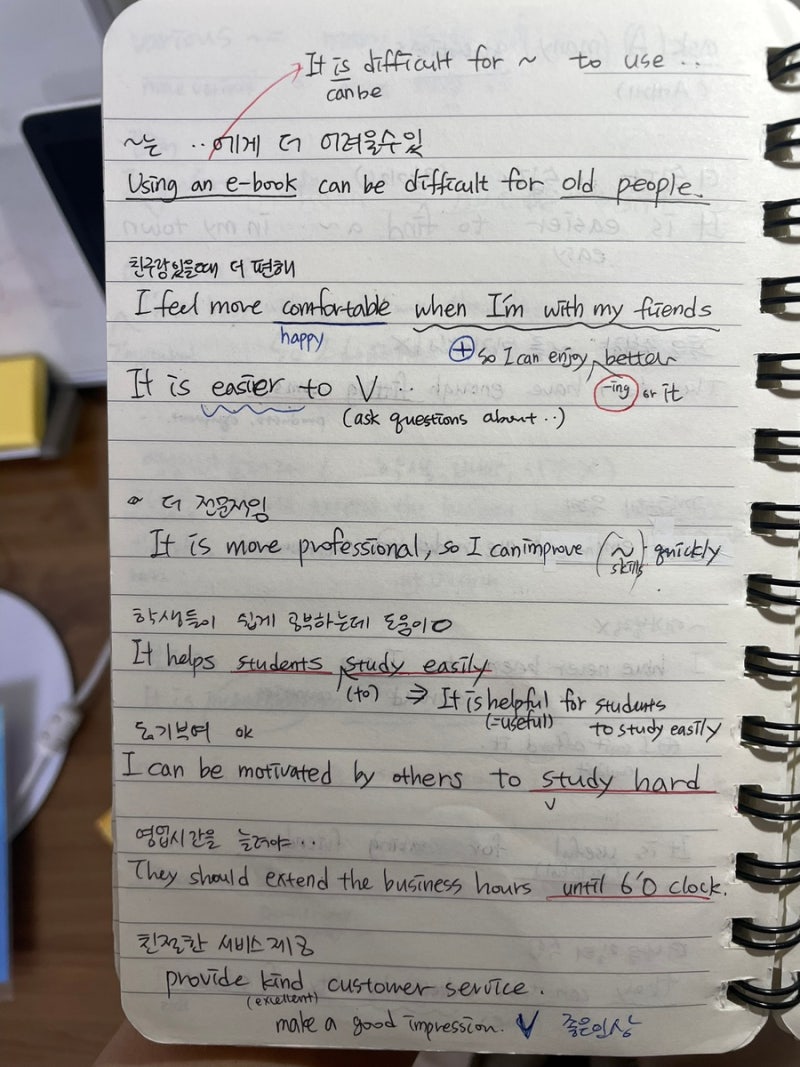 It is difficult for ~ to use ..
can be
~는 ..에게 더 어려울수있
Using an e-book can be difficult for old people.
친구랑있을때 더 편해
I feel more comfortable when I'm with my friends
happy
⊕ so I can enjoy better
-ing or it
It is easier to V...
(ask questions about..)
더 전문적임
It is more professional, so I can improve (~) quickly
skills
학생들이 쉽게 공부하는데 도움이O
It helps students study easily
(to) ⇒ It is helpful for students
(=useful) to study easily
동기부여 ok
I can be motivated by others to study hard
V
영업시간을 늘려야..
They should extend the business hours until 6'O clock.
친절한 서비스제공
provide kind customer service.
(excellent)
make a good impression. V 좋은인상